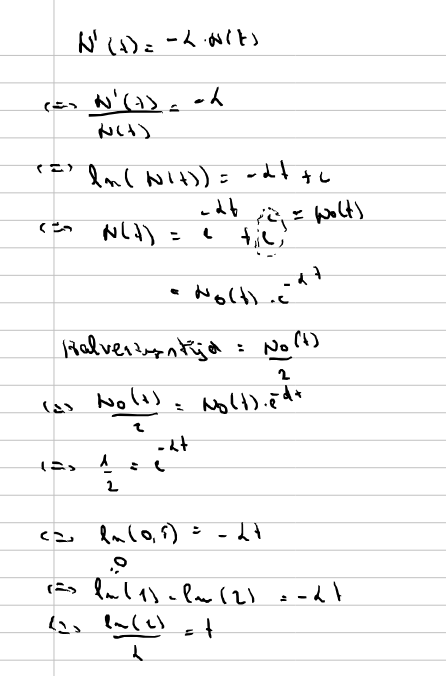 N'(t) = -λ·N(t)
<=> N'(t)/N(t) = -λ
<=> ln(N(t)) = -λt + c
<=> N(t) = e^-λt + e^c = N₀(t)
= N₀(t)·e^-λt
Halveringstijd = N₀(t)/2
<=> N₀(t)/2 = N₀(t)·e^-λt
<=> 1/2 = e^-λt
<=> ln(0,5) = -λt
0
<=> ln(1) - ln(2) = -λt
<=> ln(2)/λ = t